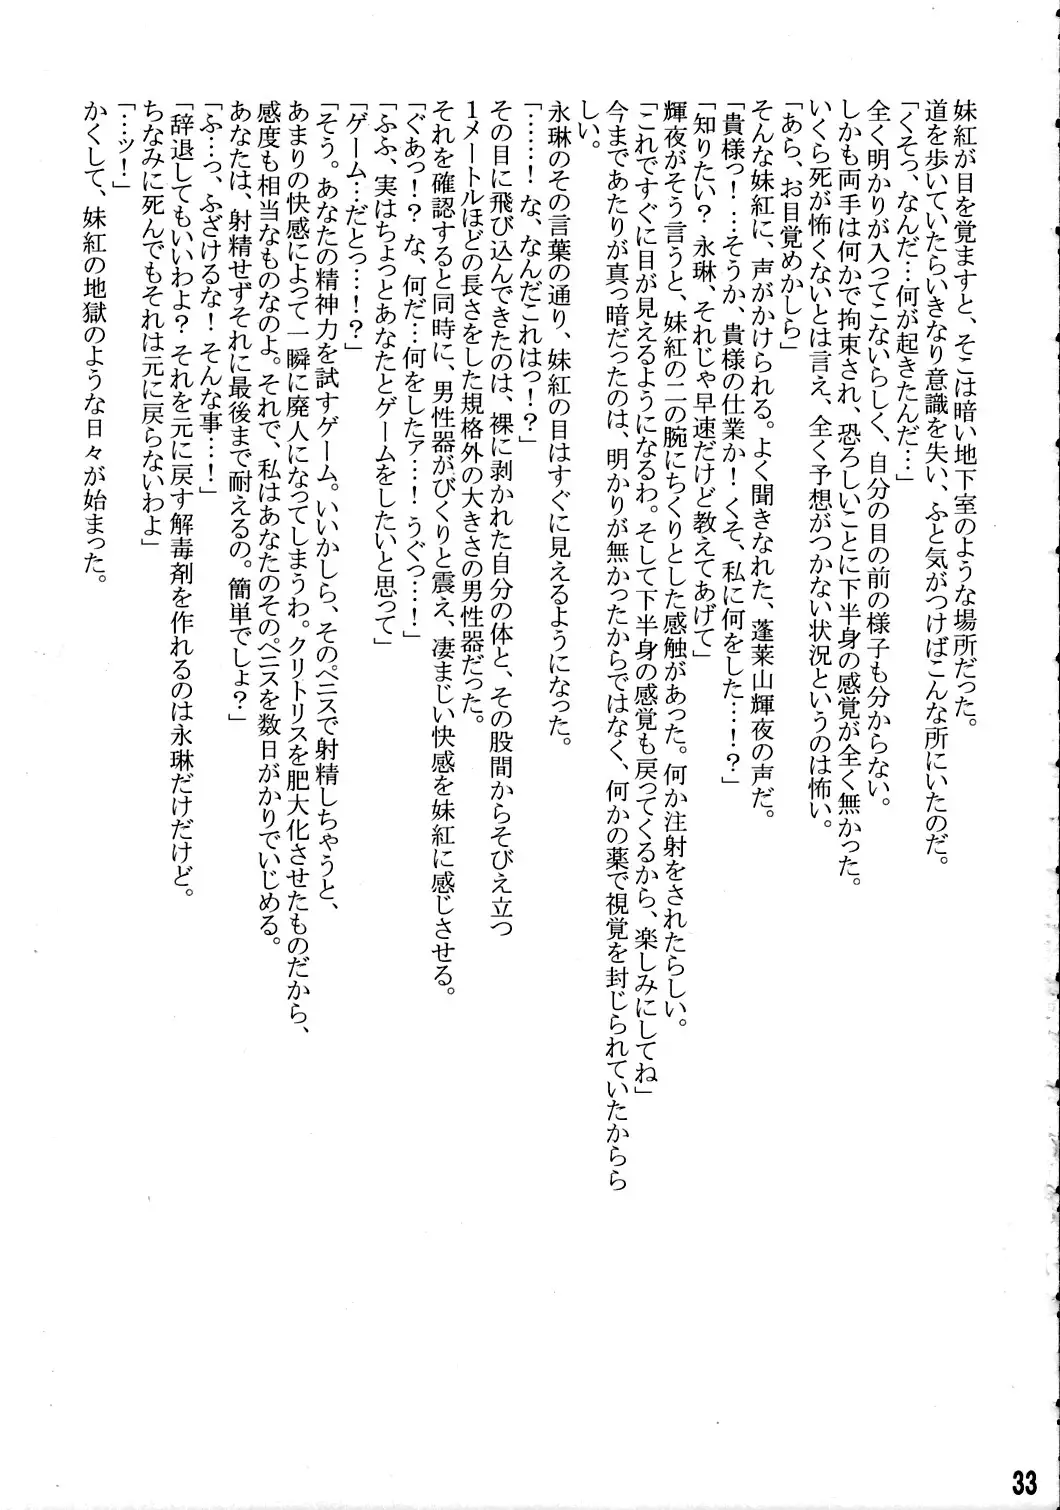 妹紅が目を覚ますと、そこは暗い地下室のような場所だった。
道を歩いていたらいきなり意識を失い、ふと気がつけばこんな所にいたのだ。
「くそっ、なんだ…何が起きたんだ…」
全く明かりが入ってこないらしく、自分の目の前の様子も分からない。
しかも両手は何かで拘束され、恐ろしいことに下半身の感覚が全く無かった。
いくら死が怖くないとは言え、全く予想がつかない状況というのは怖い。
「あら、お目覚めかしら」
そんな妹紅に、声がかけられる。よく聞きなれた、蓬莱山輝夜の声だ。
「貴様っ！…そうか、貴様の仕業か！くそ、私に何をした…！？」
「知りたい？永琳、それじゃ早速だけど教えてあげて」
輝夜がそう言うと、妹紅の二の腕にちくりとした感触があった。何か注射をされたらしい。
「これですぐに目が見えるようになるわ。そして下半身の感覚も戻ってくるから、楽しみにしてね」
今まであたりが真っ暗だったのは、明かりが無かったからではなく、何かの薬で視覚を封じられていたかららしい。
しい。
永琳のその言葉の通り、妹紅の目はすぐに見えるようになった。
「……！な、なんだこれはっ！？」
その目に飛び込んできたのは、裸に剥かれた自分の体と、その股間からそびえ立つ
１メートルほどの長さをした規格外の大きさの男性器だった。
それを確認すると同時に、男性器がびくりと震え、凄まじい快感を妹紅に感じさせる。
「ぐあっ！？な、何だ…何をしたァ…！うぐっ…！」
「ふふ、実はちょっとあなたとゲームをしたいと思って」
「ゲーム…だとっ…！？」
「そう。あなたの精神力を試すゲーム。いいかしら、そのペニスで射精しちゃうと、
あまりの快感によって一瞬に廃人になってしまうわ。クリトリスを肥大化させたものだから、
感度も相当なものなのよ。それで、私はあなたのそのペニスを数日がかりでいじめる。
あなたは、射精せずそれに最後まで耐えるの。簡単でしょ？」
「ふ…っ、ふざけるな！そんな事…！」
「辞退してもいいわよ？それを元に戻す解毒剤を作れるのは永琳だけだけど。
ちなみに死んでもそれは元に戻らないわよ」
「…ッ！」
かくして、妹紅の地獄のような日々が始まった。
33